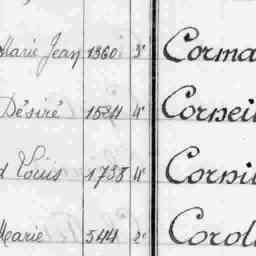 Marie Jean 1360 3e Corma
Désiré 1524 4e Cornei
d Louis 1738 4e Corni
Marie 544 2e Corol